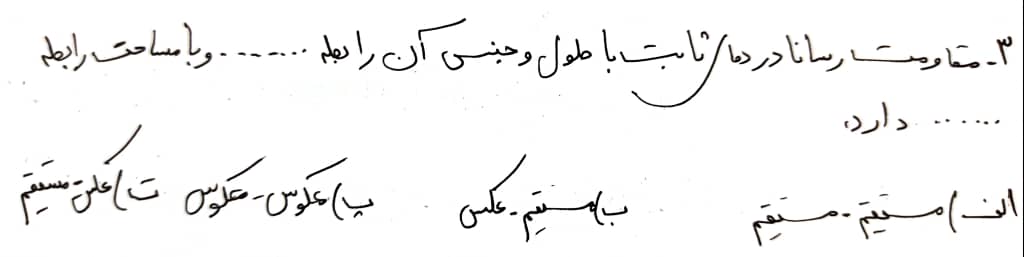 ۳- مقاومت رسانا در دمای ثابت با طول و جنس آن رابطه ....... و با مساحت رابطه
...... دارد.
الف) مستقیم - مستقیم ب) مستقیم - عکس پ) معکوس - معکوس ت) عکس - مستقیم